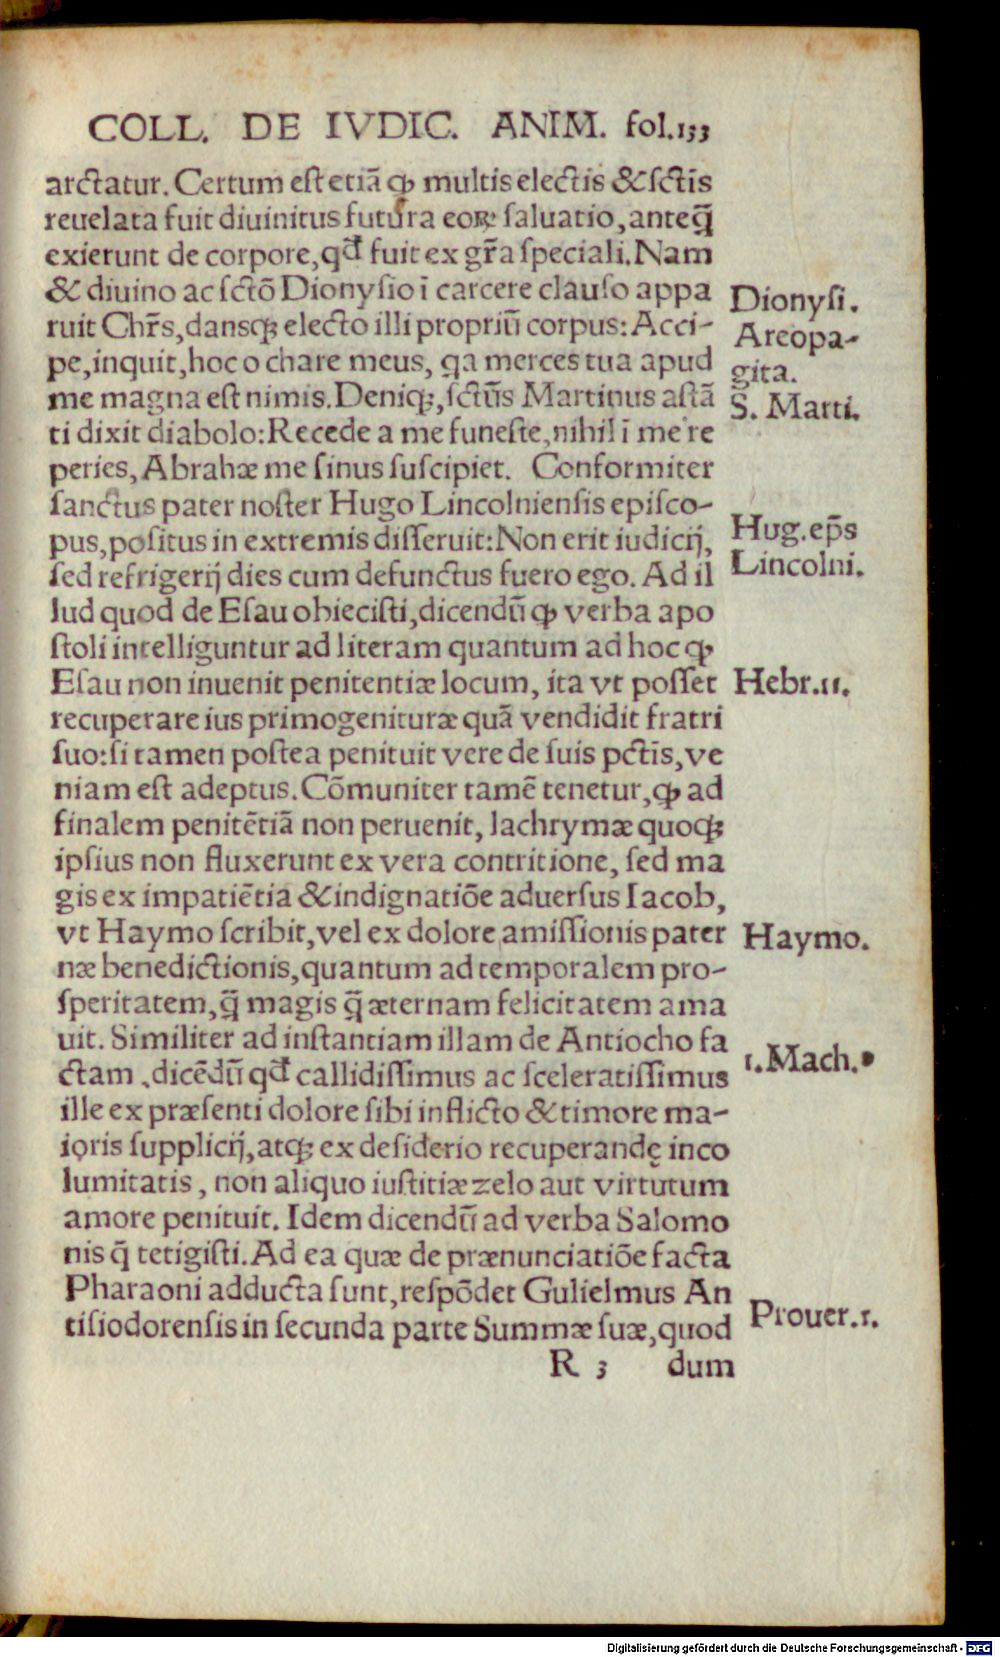 COLL. DE IVDIC. ANIM. fol.133
arctatur. Certum est etiā ꝙ multis electis & sctīs
reuelata fuit diuinitus futura eoꝝ saluatio, anteq̄
exierunt de corpore, qđ fuit ex gr̄a speciali. Nam
& diuino ac sctō Dionysio ī carcere clauso appa
Dionysi.
ruit Chr̄s, dansqꝫ electo illi propriū corpus: Acci-
Areopa-
pe, inquit, hoc o chare meus, qa merces tua apud
gita.
me magna est nimis. Deniqꝫ, sctūs Martinus astā
S. Marti.
ti dixit diabolo: Recede a me funeste, nihil ī me re
peries, Abrahæ me sinus suscipiet. Conformiter
sanctus pater noster Hugo Lincolniensis episco-
pus, positus in extremis disseruit: Non erit iudicij,
Hug. ep̄s
sed refrigerij dies cum defunctus fuero ego. Ad il
Lincolni.
lud quod de Esau obiecisti, dicendū ꝙ verba apo
stoli intelliguntur ad literam quantum ad hoc ꝙ
Esau non inuenit penitentiæ locum, ita vt posset
Hebr. 11.
recuperare ius primogenituræ quā vendidit fratri
suo: si tamen postea penituit vere de suis pctīs, ve
niam est adeptus. Cōmuniter tamē tenetur, ꝙ ad
finalem penitētiā non peruenit, lachrymæ quoqꝫ
ipsius non fluxerunt ex vera contritione, sed ma
gis ex impatiētia & indignatiōe aduersus Iacob,
vt Haymo scribit, vel ex dolore amissionis pater
Haymo.
næ benedictionis, quantum ad temporalem pro-
speritatem, q̄ magis q̄ æternam felicitatem ama
uit. Similiter ad instantiam illam de Antiocho fa
1. Mach.
ctam, dicēdū qđ callidissimus ac sceleratissimus
ille ex præsenti dolore sibi inflicto & timore ma-
ioris supplicij, atqꝫ ex desiderio recuperandę inco
lumitatis, non aliquo iustitiæ zelo aut virtutum
amore penituit. Idem dicendū ad verba Salomo
nis q̄ tetigisti. Ad ea quæ de prænunciatiōe facta
Pharaoni adducta sunt, respōdet Gulielmus An
Prouer. 1.
tisiodorensis in secunda parte Summæ suæ, quod
R 3 dum
Digitalisierung gefördert durch die Deutsche Forschungsgemeinschaft - DFG